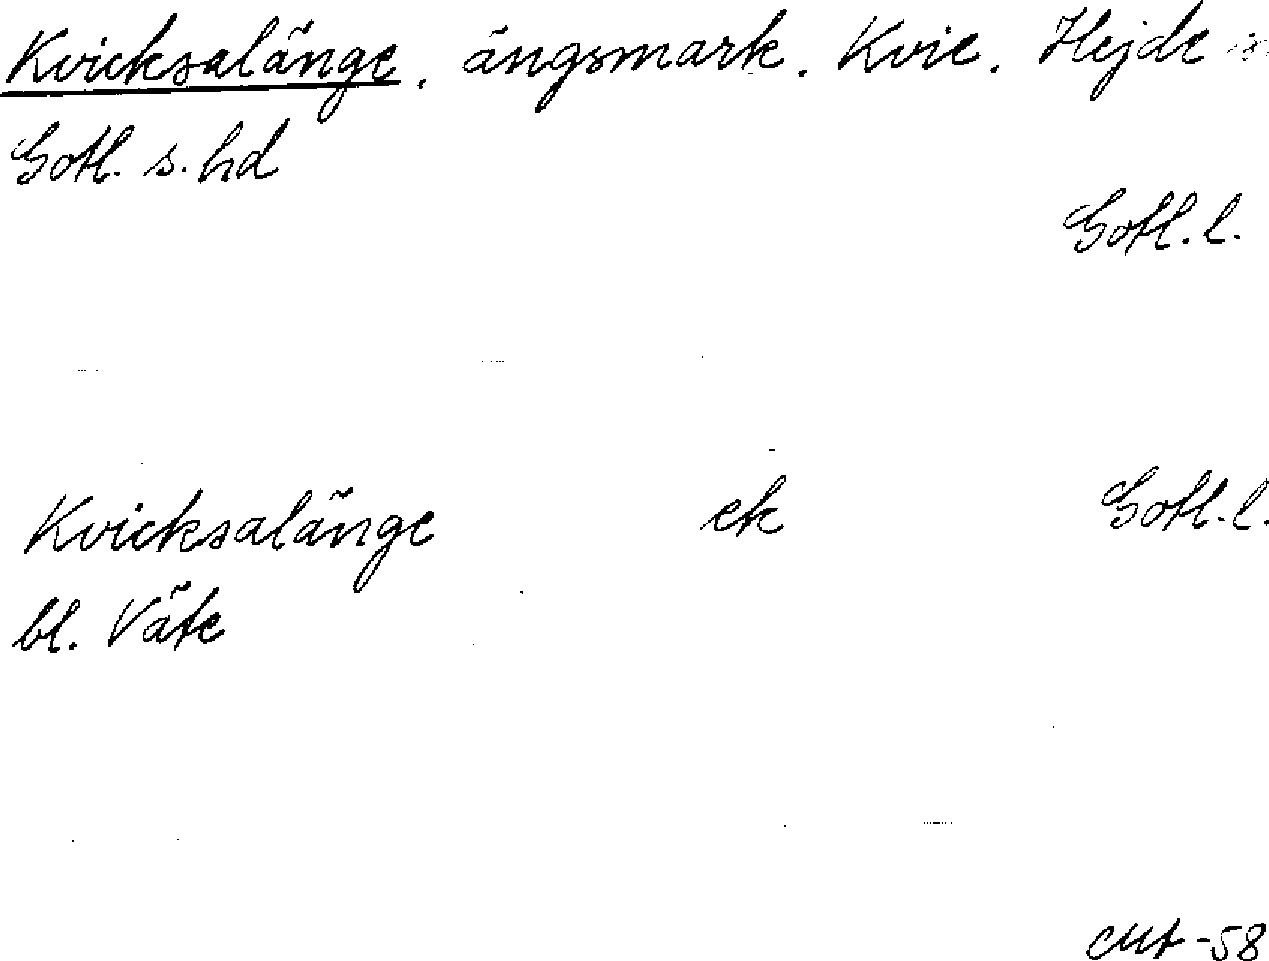 Kvicksalänge. ängsmark. Kvie. Hejde
Gotl. s. hd
Gotl. l.
Kvicksalänge ek Gotl. l.
bl. Väte
-58